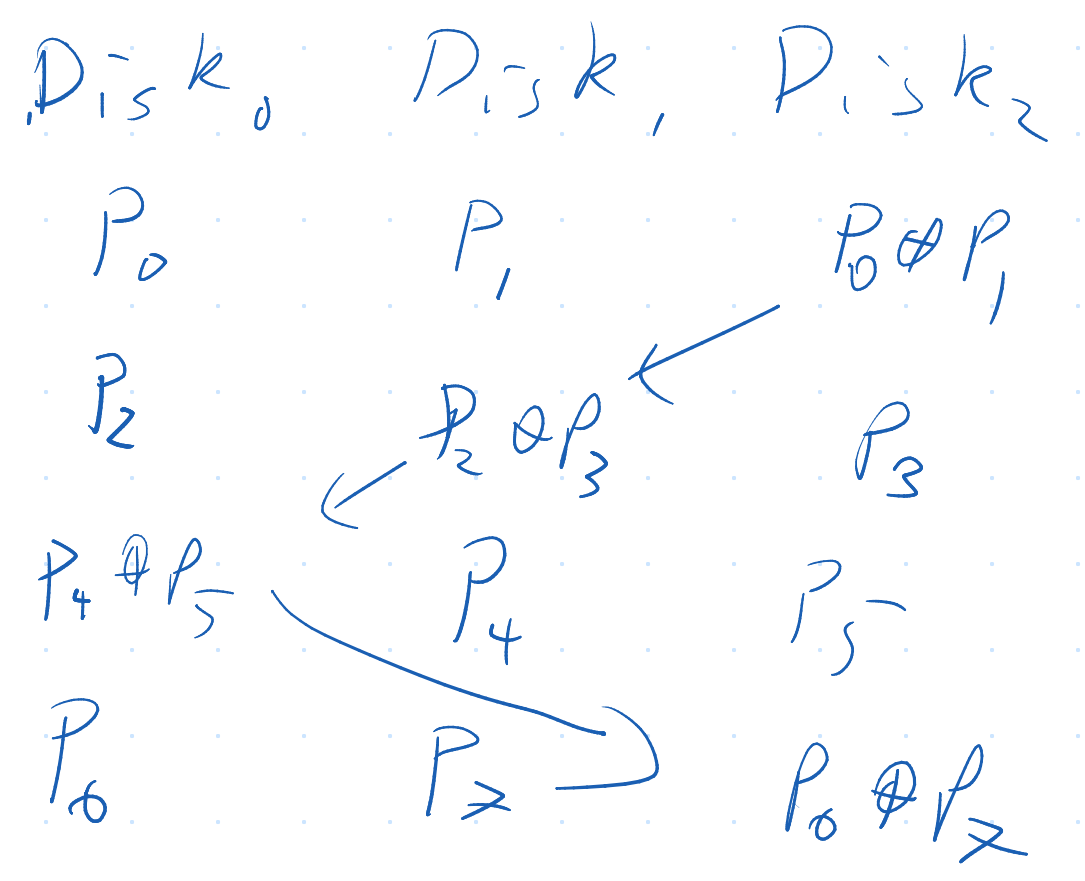 Disk₀ Disk₁ Disk₂
P₀ P₁ P₀⊕P₁
P₂ P₂⊕P₃ P₃
P₄⊕P₅ P₄ P₅
P₆ P₇ P₆⊕P₇